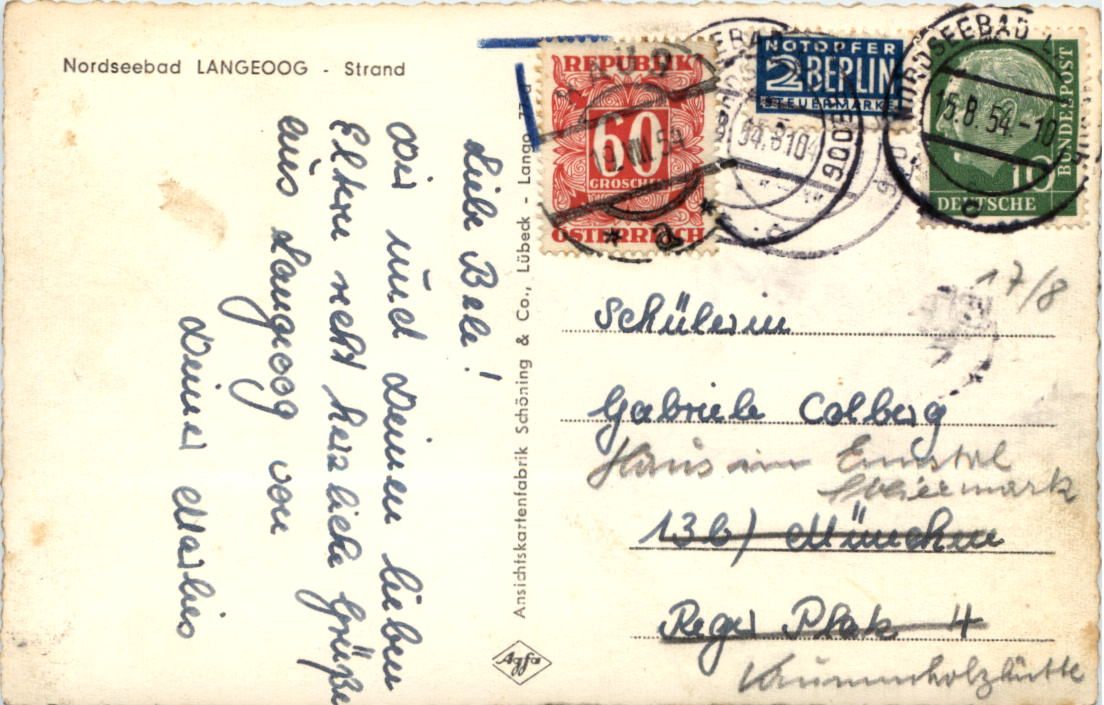 Nordseebad LANGEOOG - Strand
Liebe Bele!
Dir und Deinen lieben
Eltern recht herzliche Grüße
aus Langeoog von
Deiner Marlies
Ansichtskartenfabrik Schöning & Co., Lübeck - Lango
Agfa
REPUBLIK
60
GROSCHEN
ÖSTERREICH
19.VIII.54
* a *
NOTOPFER
2 BERLIN
STEUERMARKE
NORDSEEBAD
15.8.54.-10
10
DEUTSCHE
BUNDESPOST
17/8
Schülerin
Gabriele Colberg
Haus im Ennstal
Steiermark
13b) München
Reger Platz 4
Krummholzhütte